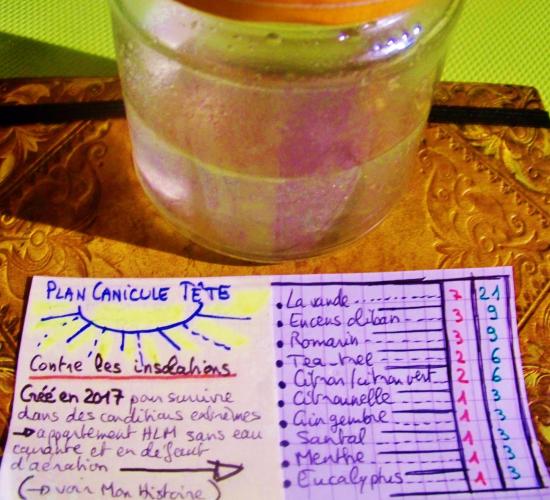 PLAN CANICULE TÊTE
Contre les insolations
Créé en 2017 pour survivre
dans des conditions extrêmes
→ appartement HLM sans eau
courante et en défaut
d'aération →
(→ voir Mon Histoire)
• Lavande 7 21
• Encens oliban 3 9
• Romarin 3 9
• Tea-tree 2 6
• Citron/citron vert 2 6
• Citronnelle 1 3
• Gingembre 1 3
• Santal 1 3
• Menthe 1 3
• Eucalyptus 1 3